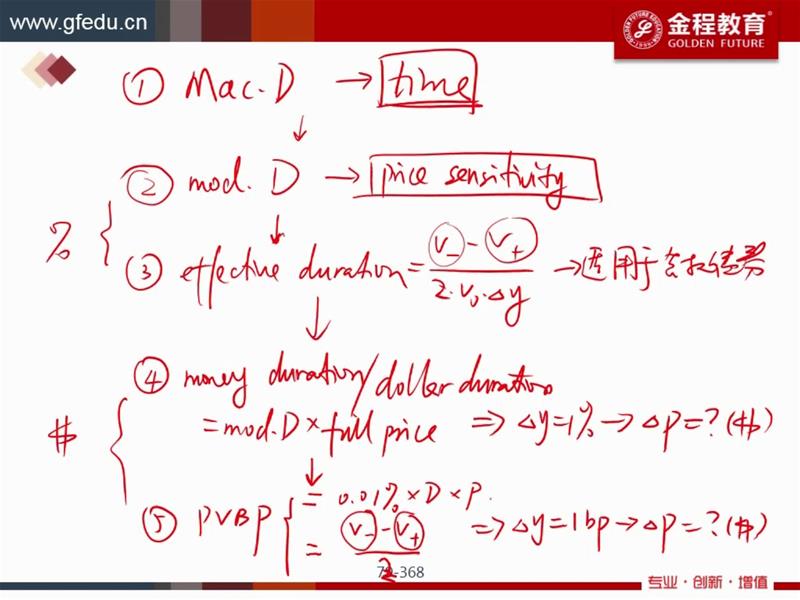 www.gfedu.cn
金程教育
GOLDEN FUTURE
① Mac. D → time
↓
② mod. D → price sensitivity
%
↓
③ effective duration = (V₋ - V₊) / (2·V₀·Δy) → 适用于含权债券
↓
④ money duration/dollar duration
= mod.D × full price ⇒ Δy=1% → ΔP=? ($)
$
↓
⑤ PVBP = 0.01% × D × P.
= (V₋ - V₊) / 2 ⇒ Δy=1bp → ΔP=? ($)
-368
专业·创新·增值